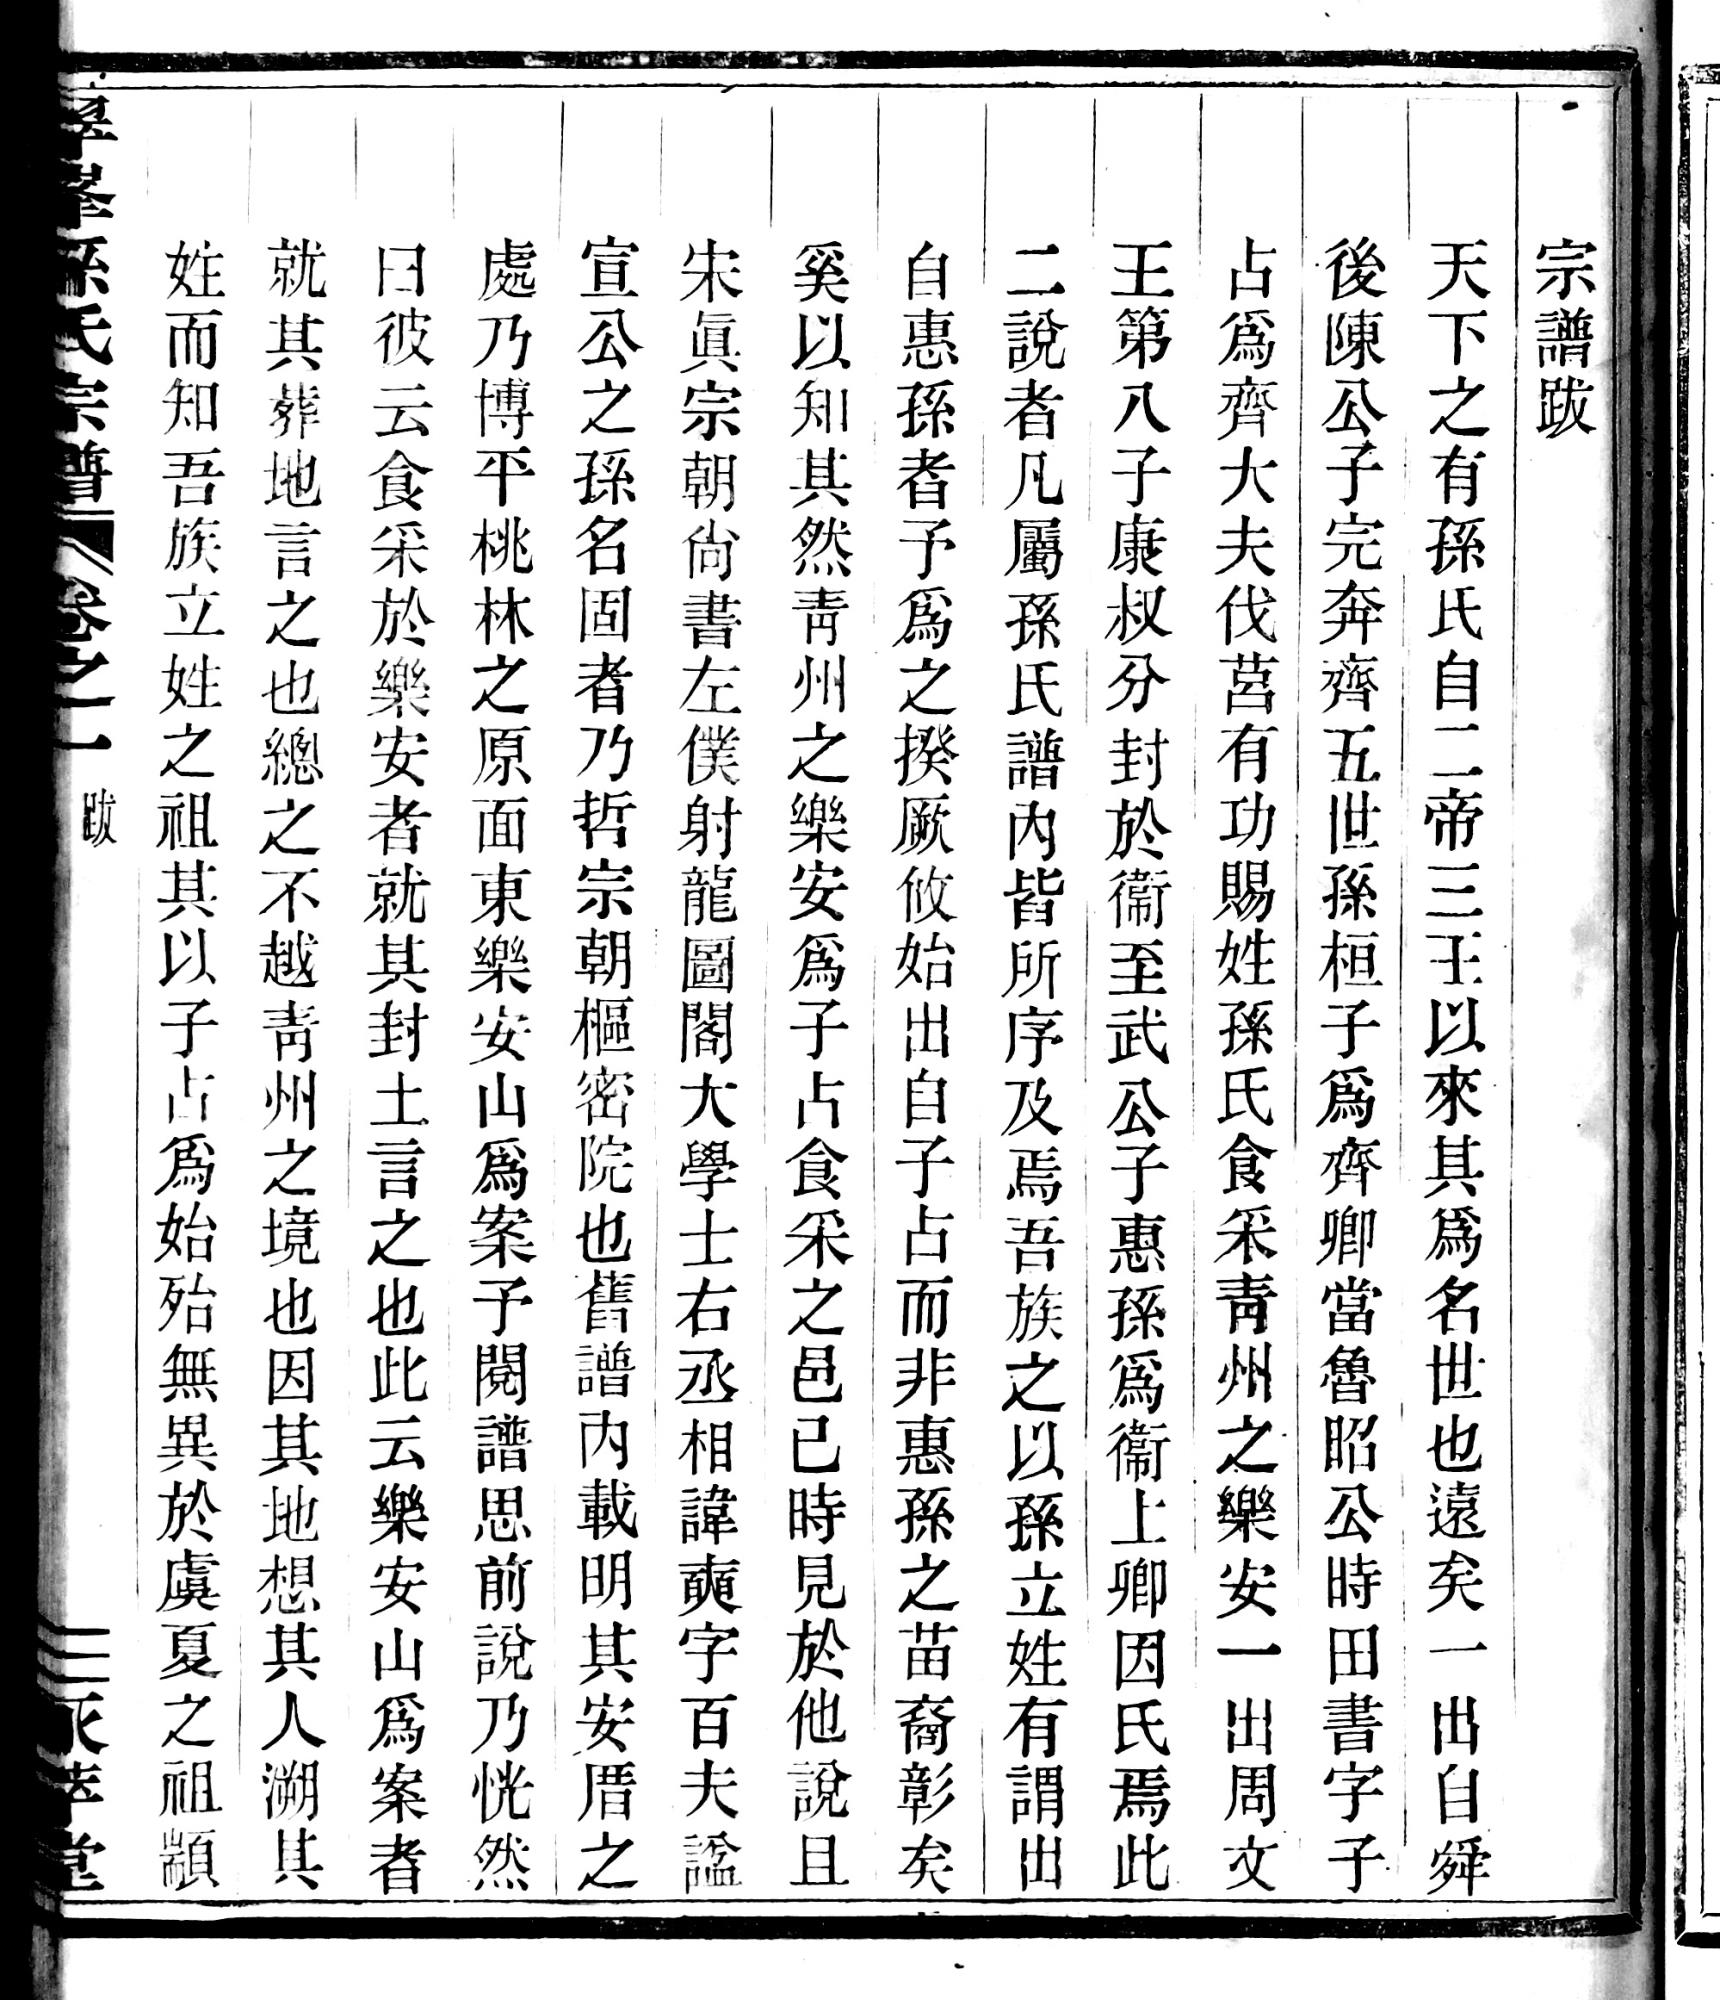 宗譜跋
天下之有孫氏自二帝三王以來其爲名世也遠矣一出自舜
後陳公子完奔齊齊五世孫桓子爲齊卿當魯昭公時田書字子
占爲齊大夫伐莒有功賜姓孫氏食采青州之樂安一出周文
王第八子康叔分封於衞至武公子惠孫爲衞上卿因氏焉此
二說者凡屬孫氏譜內皆所序及焉吾族之以孫立姓有謂出
自惠孫者予爲之揆厥攸始出自子占而非惠孫之苗裔彰矣
奚以知其然青州之樂安爲子占食采之邑已時見於他說且
宋眞宗朝尙書左僕射龍圖閣大學士右丞相諱奭字百夫諡
宣公之孫名固者乃哲宗朝樞密院也舊譜內載明其安厝之
處乃博平桃林之原面東樂安山爲案予閱譜思前說乃恍然
曰彼云食采於樂安者就其封土言之也此云樂安山爲案者
就其葬地言之也總之不越青州之境也因其地想其人溯其
姓而知吾族立姓之祖其以子占爲始殆無異於虞夏之祖顓
孫氏宗譜 卷之一 跋 二 萃堂